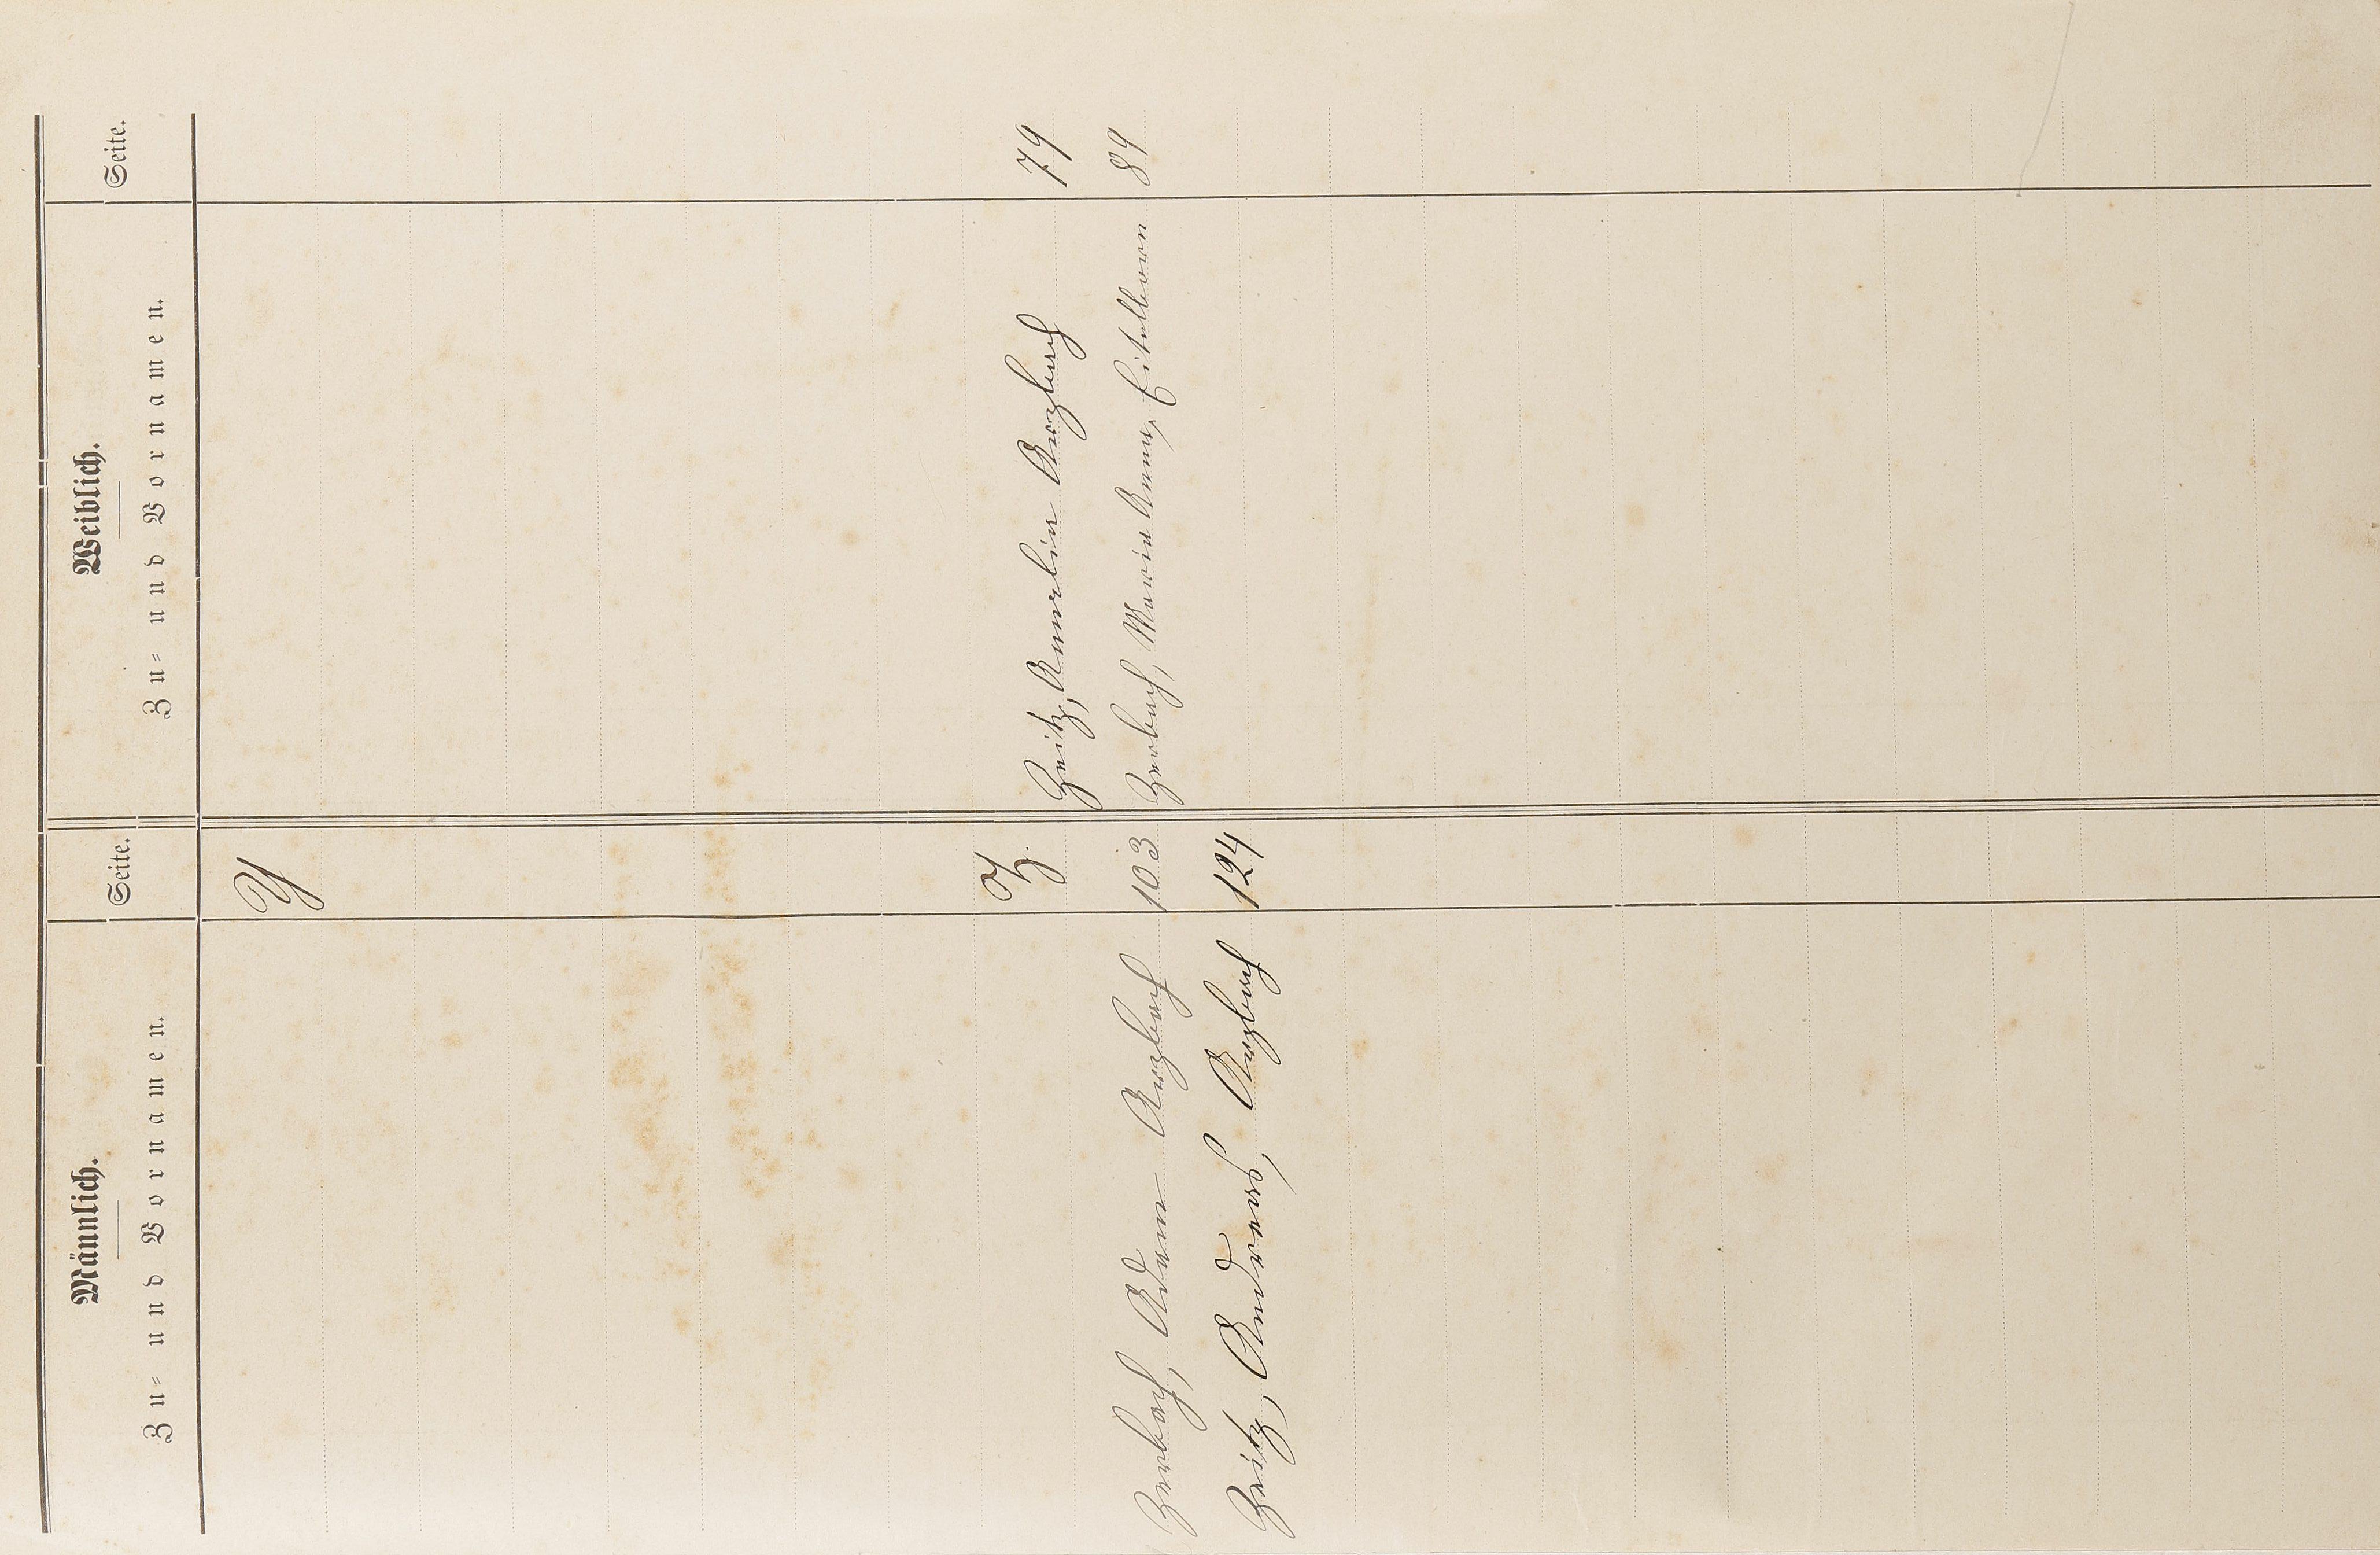 Männlich.
Zu- und Vornamen.
Seite.
Weiblich.
Zu- und Vornamen.
Seite.
Y
Z.
Zeitz, Amalia Arzbach 79
Zerbach, Adam Arzbach 103
Zerbach, Maria Anna, Eitelborn 89
Zeitz, Andreas, Arzbach 124